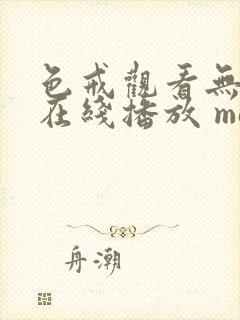 色戒觀看無
在綫播放 m
舟潮